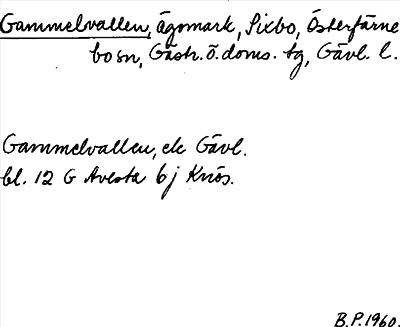 Gammelvallen, ägomark, Sixbo, Österfärne
bo sn, Gästr. ö. doms. tg, Gävl. l.
Gammelvallen, ek Gävl.
bl. 12 G Avesta bj Knös.
B.P. 1960.